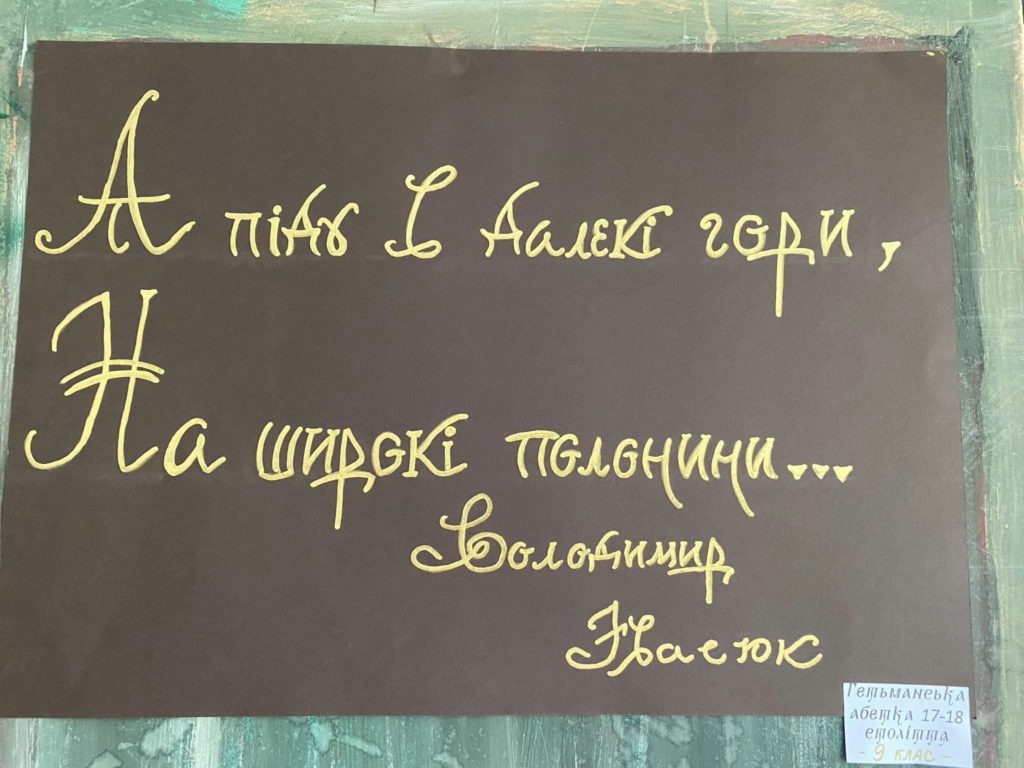 А піду І далекі гори,
На широкі полонини...
Володимир
Івасюк
Гетьманська
абетка 17-18
століття
- 9 клас -